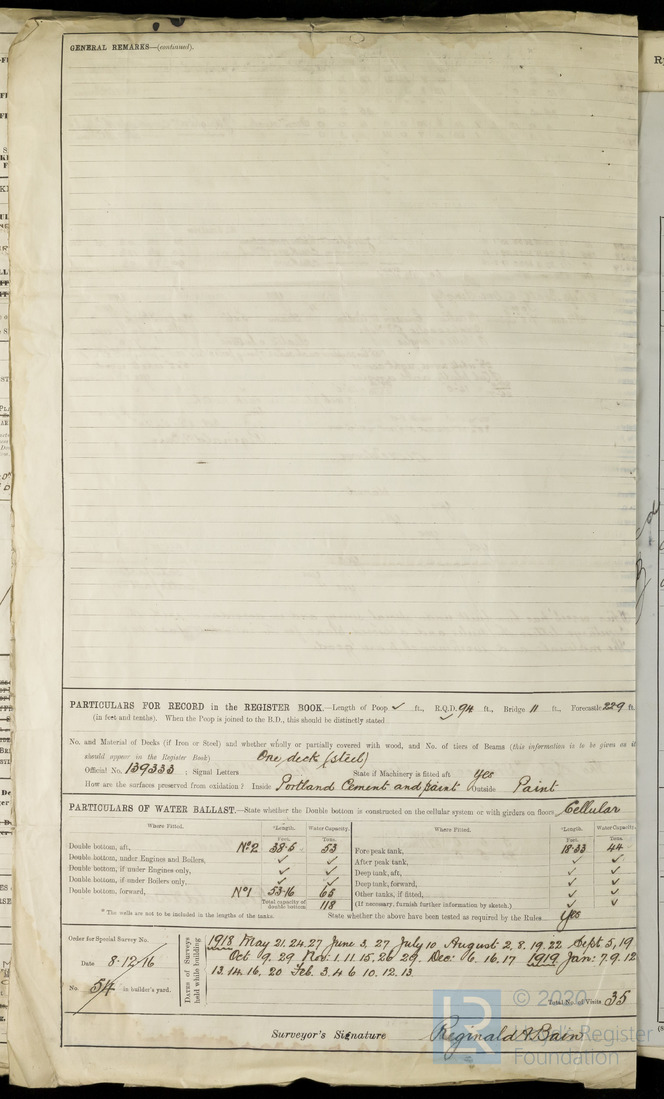 GENERAL REMARKS—(continued).
PARTICULARS FOR RECORD in the REGISTER BOOK.—Length of Poop ✓ ft., R.Q.D. 94 ft., Bridge 11 ft., Forecastle 22·9 ft.
(in feet and tenths). When the Poop is joined to the B.D., this should be distinctly stated ✓
No. and Material of Decks (if Iron or Steel) and whether wholly or partially covered with wood, and No. of tiers of Beams (this information is to be given as it
should appear in the Register Book) One deck (steel)
Official No. 139333 ; Signal Letters State if Machinery is fitted aft Yes
How are the surfaces preserved from oxidation? Inside Portland Cement and paint Outside Paint
PARTICULARS OF WATER BALLAST.—State whether the Double bottom is constructed on the cellular system or with girders on floors Cellular
Where Fitted. *Length. Water Capacity. Where Fitted. *Length. Water Capacity.
Feet. Tons. Feet. Tons.
Double bottom, aft, No 2 38·5 53 Fore peak tank, 18·33 44
Double bottom, under Engines and Boilers, ✓ ✓ After peak tank, ✓ ✓
Double bottom, if under Engines only, ✓ ✓ Deep tank, aft, ✓ ✓
Double bottom, if under Boilers only, ✓ ✓ Deep tank, forward, ✓ ✓
Double bottom, forward, No 1 53·16 65 Other tanks, if fitted, ✓ ✓
Total capacity of double bottom 118 (If necessary, furnish further information by sketch.) ✓ ✓
* The wells are not to be included in the lengths of the tanks. State whether the above have been tested as required by the Rules Yes
Order for Special Survey No.
Date 8·12/16
No. 54 in builder's yard.
DATES of Surveys held while building
1918 May 21. 24. 27 June 3. 27 July 10 August 2. 8. 19. 22 Sept 5, 19
Oct 9. 29 Nov: 1. 11. 15. 26 29. Dec: 6. 16. 17 1919 Jan: 7. 9. 12
13. 14. 16. 20 Feb. 3. 4 6 10. 12. 13
Total No. of Visits 35
Surveyor's Signature Reginald A Bain
LR © 2020 Lloyd's Register Foundation